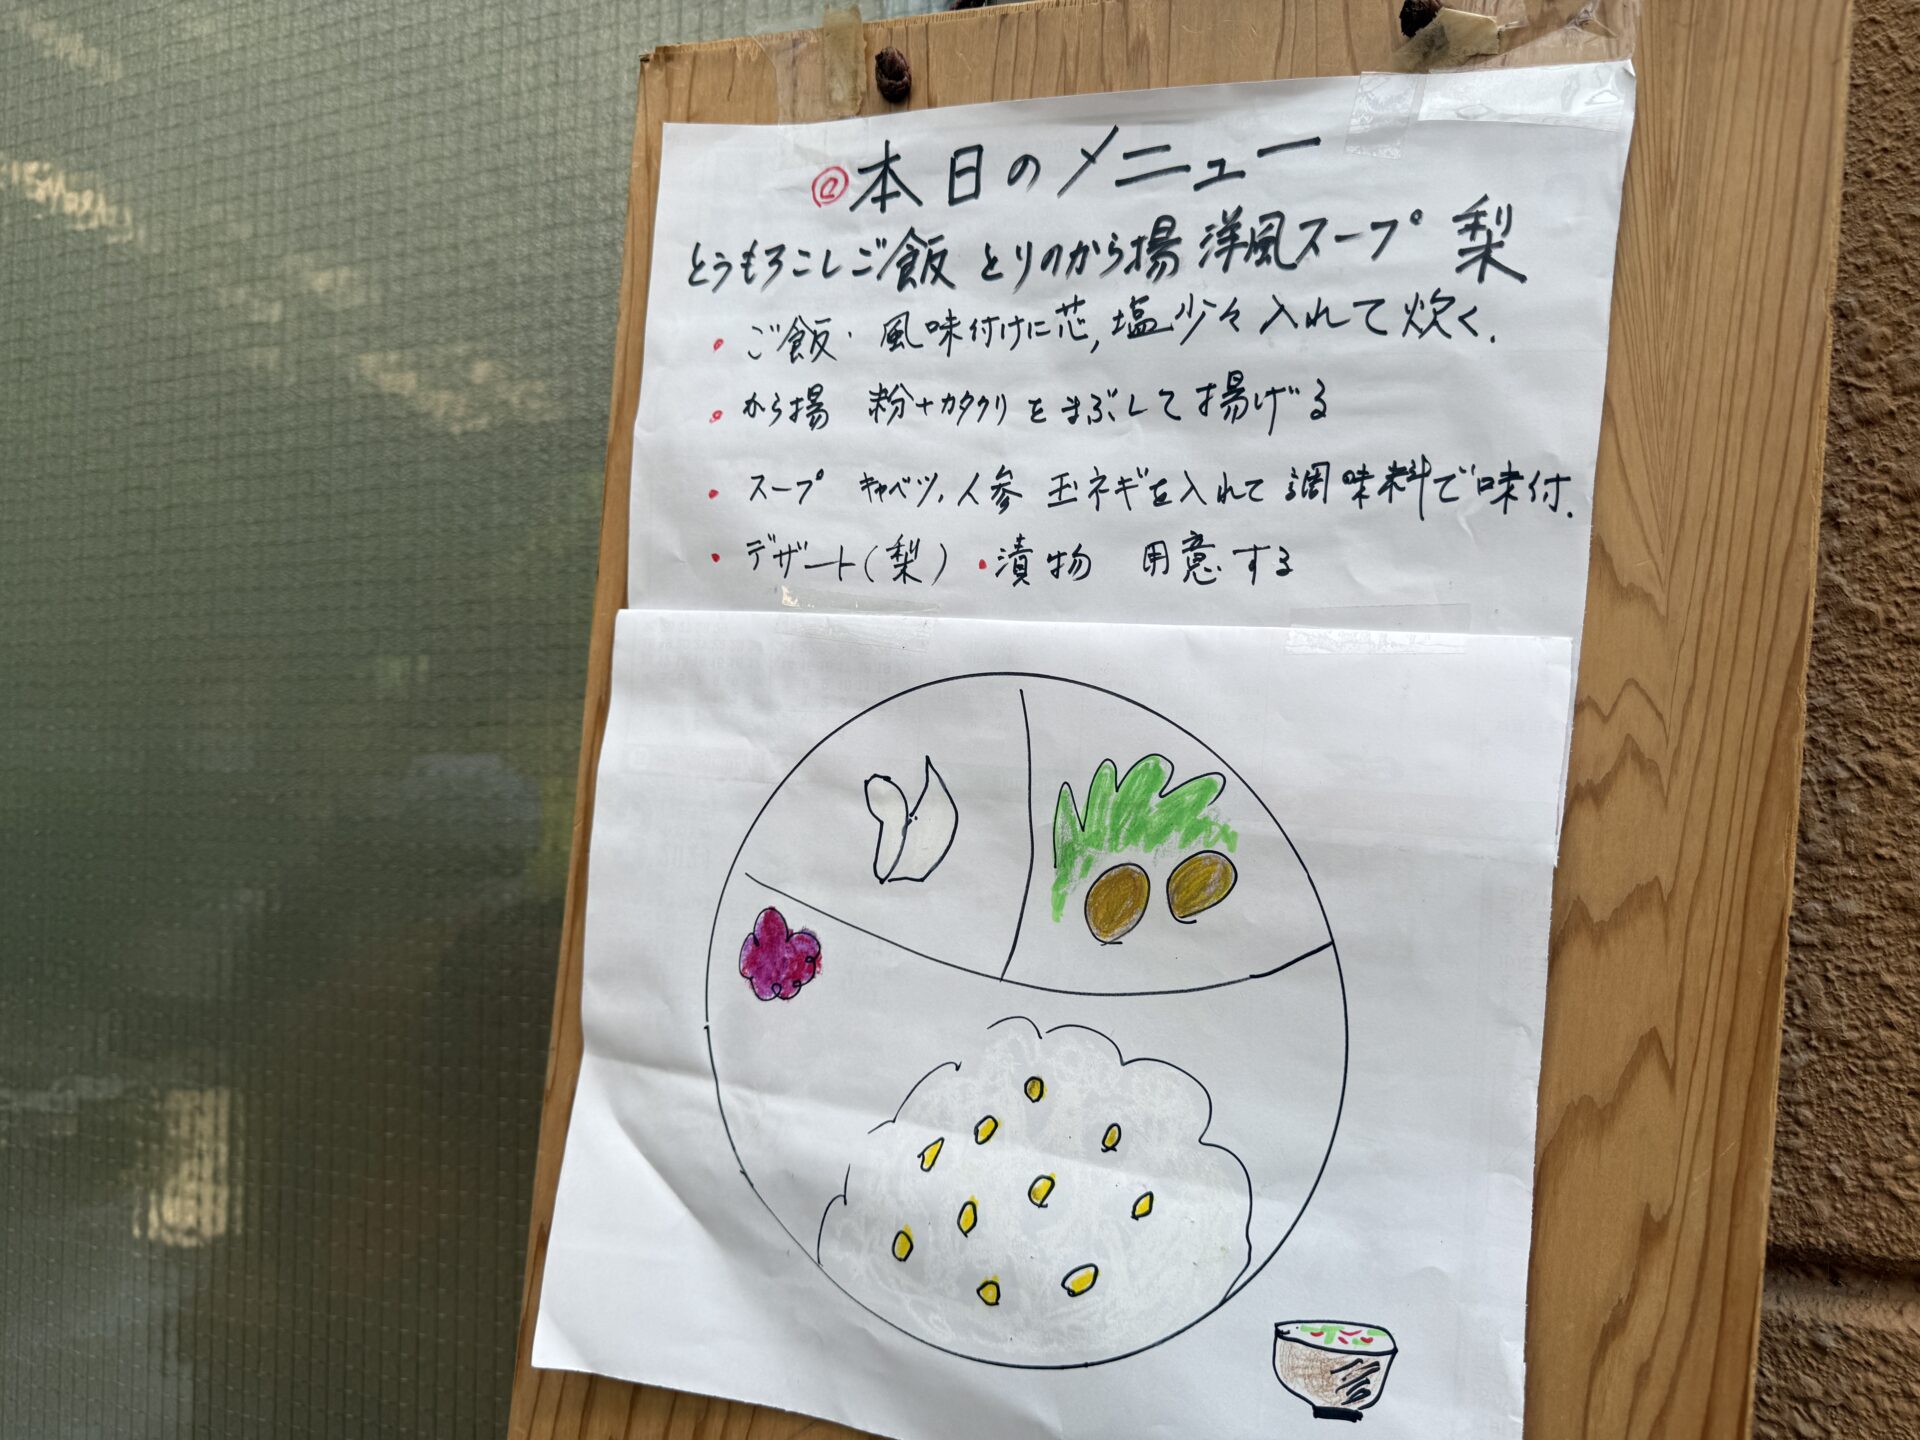 @本日のメニュー
とうもろこしご飯 とりのから揚 洋風スープ 梨
・ご飯・風味付けに芯,塩少々入れて炊く.
・から揚 粉+カタクリをまぶして揚げる
・スープ キャベツ,人参 玉ネギを入れて調味料で味付.
・デザート(梨) ・漬物 用意する